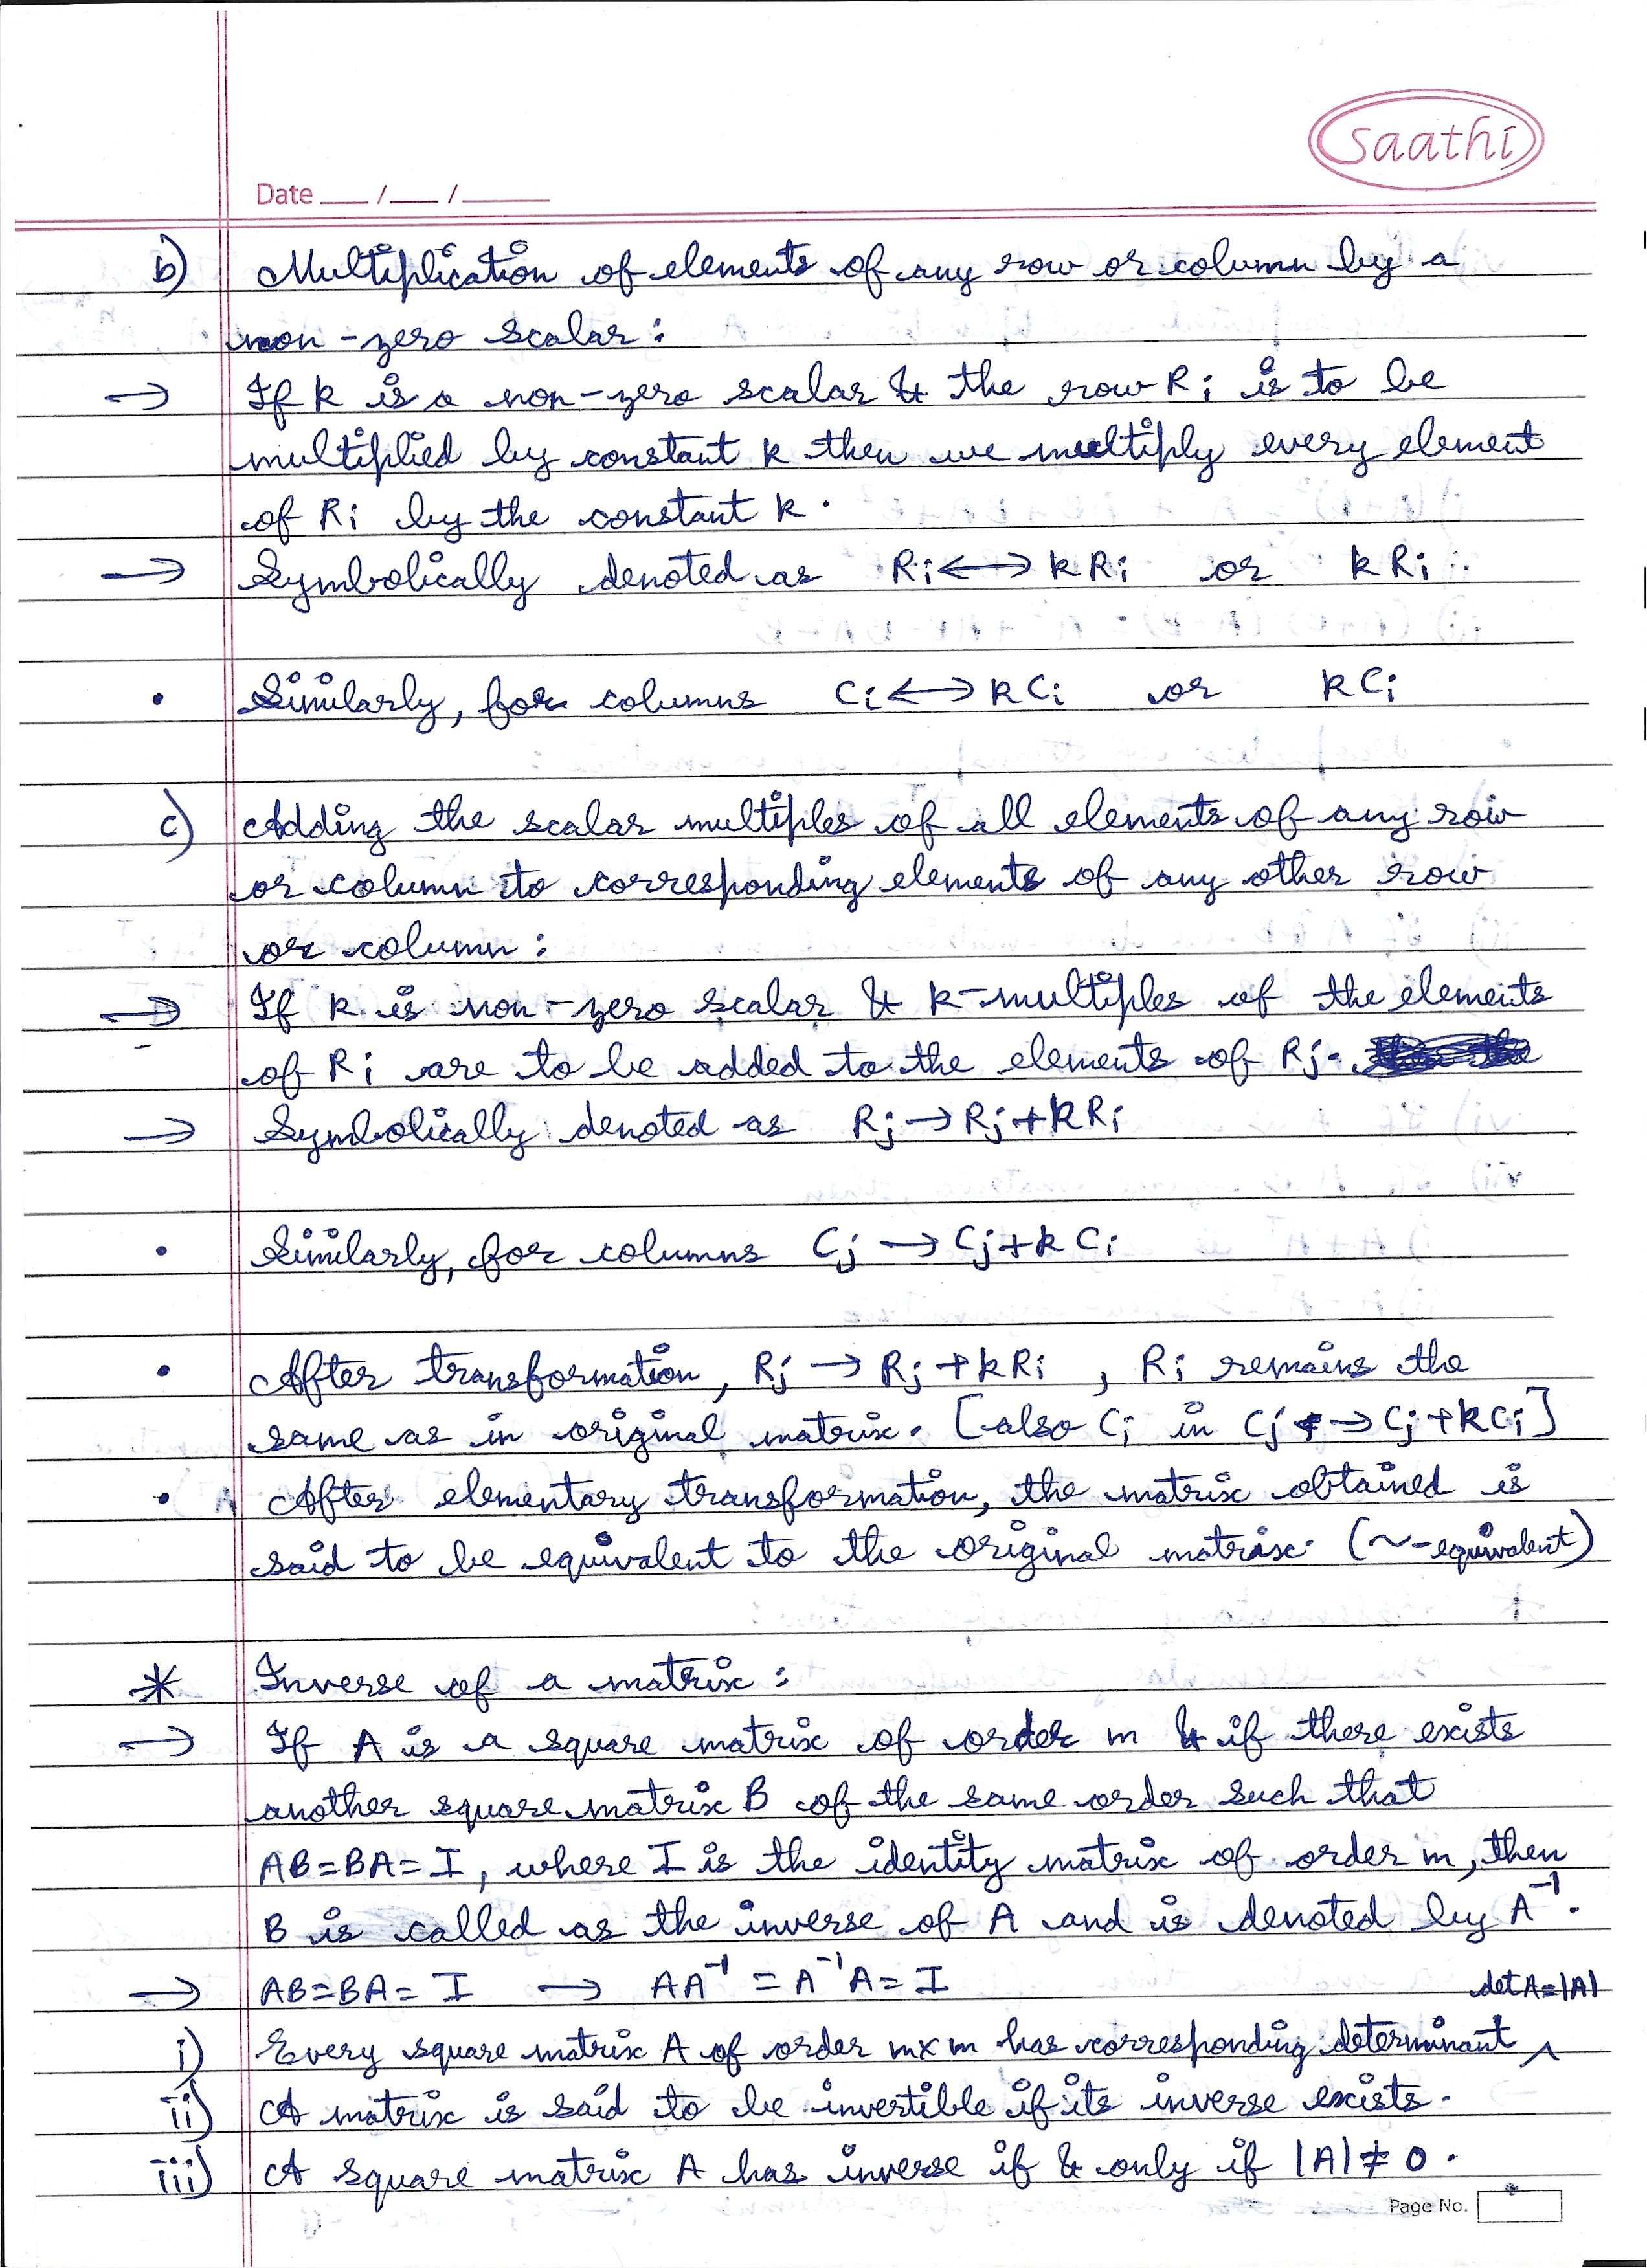 Saathi
Date ___ / ___ / _____
b) Multiplication of elements of any row or column by a
non-zero scalar :
→ If k is a non-zero scalar & the row Ri is to be
multiplied by constant k then we multiply every element
of Ri by the constant k.
→ Symbolically denoted as Ri ↔ kRi or kRi
• Similarly, for columns Ci ↔ kCi or kCi
c) Adding the scalar multiples of all elements of any row
or column to corresponding elements of any other row
or column :
→ If k is non-zero scalar & k-multiples of the elements
of Ri are to be added to the elements of Rj.
→ Symbolically denoted as Rj → Rj + kRi
• Similarly, for columns Cj → Cj + kCi
• After transformation, Rj → Rj + kRi , Ri remains the
same as in original matrix. [also Ci in Cj → Cj + kCi]
• After elementary transformation, the matrix obtained is
said to be equivalent to the original matrix. (~ - equivalent)
* Inverse of a matrix :
→ If A is a square matrix of order m & if there exists
another square matrix B of the same order such that
AB = BA = I, where I is the identity matrix of order m, then
B is called as the inverse of A and is denoted by A⁻¹.
→ AB = BA = I → AA⁻¹ = A⁻¹A = I det A = |A|
i) Every square matrix A of order m×m has corresponding determinant ^
ii) A matrix is said to be invertible if its inverse exists.
iii) A square matrix A has inverse if & only if |A| ≠ 0.
Page No.